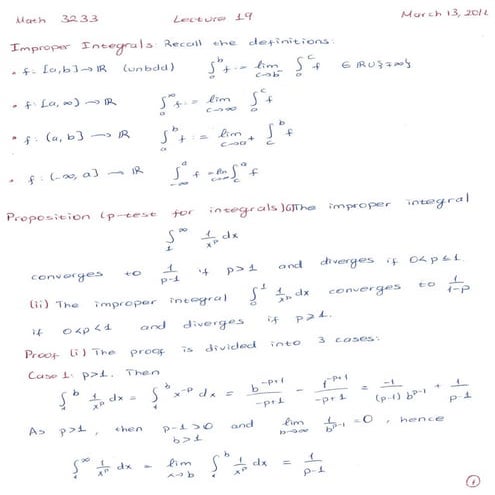 Math 3233 Lecture 19 March 13, 201
Improper Integrals: Recall the definitions:
• f: [a,b] → ℝ (unbdd) ∫_a^b f := lim_{c→b⁻} ∫_a^c f ∈ ℝ∪{∓∞}
• f: [a, ∞) → ℝ ∫_a^∞ f := lim_{c→∞} ∫_a^c f
• f: (a, b] → ℝ ∫_a^b f := lim_{c→a+} ∫_c^b f
• f: (-∞, a] → ℝ ∫_{-∞}^a f = lim ∫_c^a f
Proposition (p-test for integrals) (i) The improper integral
∫_1^∞ 1/x^p dx
converges to 1/(p-1) if p>1 and diverges if 0<p≤1.
(ii) The improper integral ∫_0^1 1/x^p dx converges to 1/(1-p)
if 0<p<1 and diverges if p≥1.
Proof (i) The proof is divided into 3 cases:
Case 1: p>1. Then
∫_1^b 1/x^p dx = ∫_1^b x^{-p} dx = b^{-p+1}/(-p+1) - 1^{-p+1}/(-p+1) = -1/((p-1) b^{p-1}) + 1/(p-1)
As p>1, then p-1>0 and lim_{b→∞} 1/b^{p-1} = 0, hence
b>1
∫_1^∞ 1/x^p dx = lim_{x→b} ∫_1^b 1/x^p dx = 1/(p-1)
1